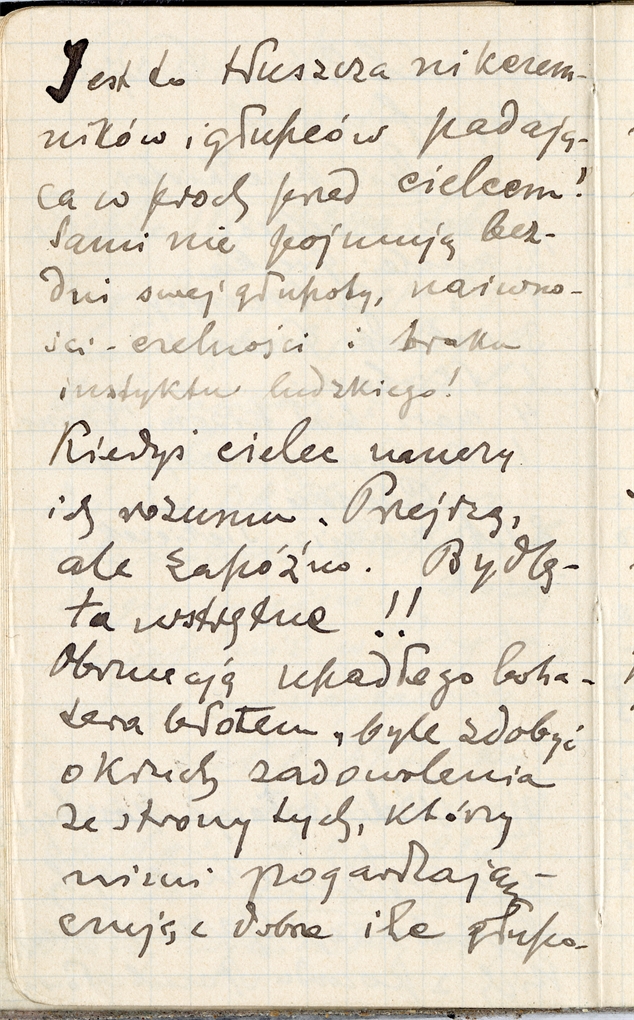 Jest to tłuszcza nikczem-
ników i głupców padają-
ca w proch przed cielcem!
Sami nie pojmują bez-
dni swej głupoty, naiwno-
ści - czelności i braku
instyktu ludzkiego!
Kiedyś cielec nauczy
ich rozumu. Przejrzą,
ale zapóźno. Bydlę-
ta wstrętne !!
Obrzucają upadłego boha-
tera błotem, byle zdobyć
okruchy zadowolenia
ze strony tych, którzy
nimi pogardzają,
czując dobrze ile głupo-